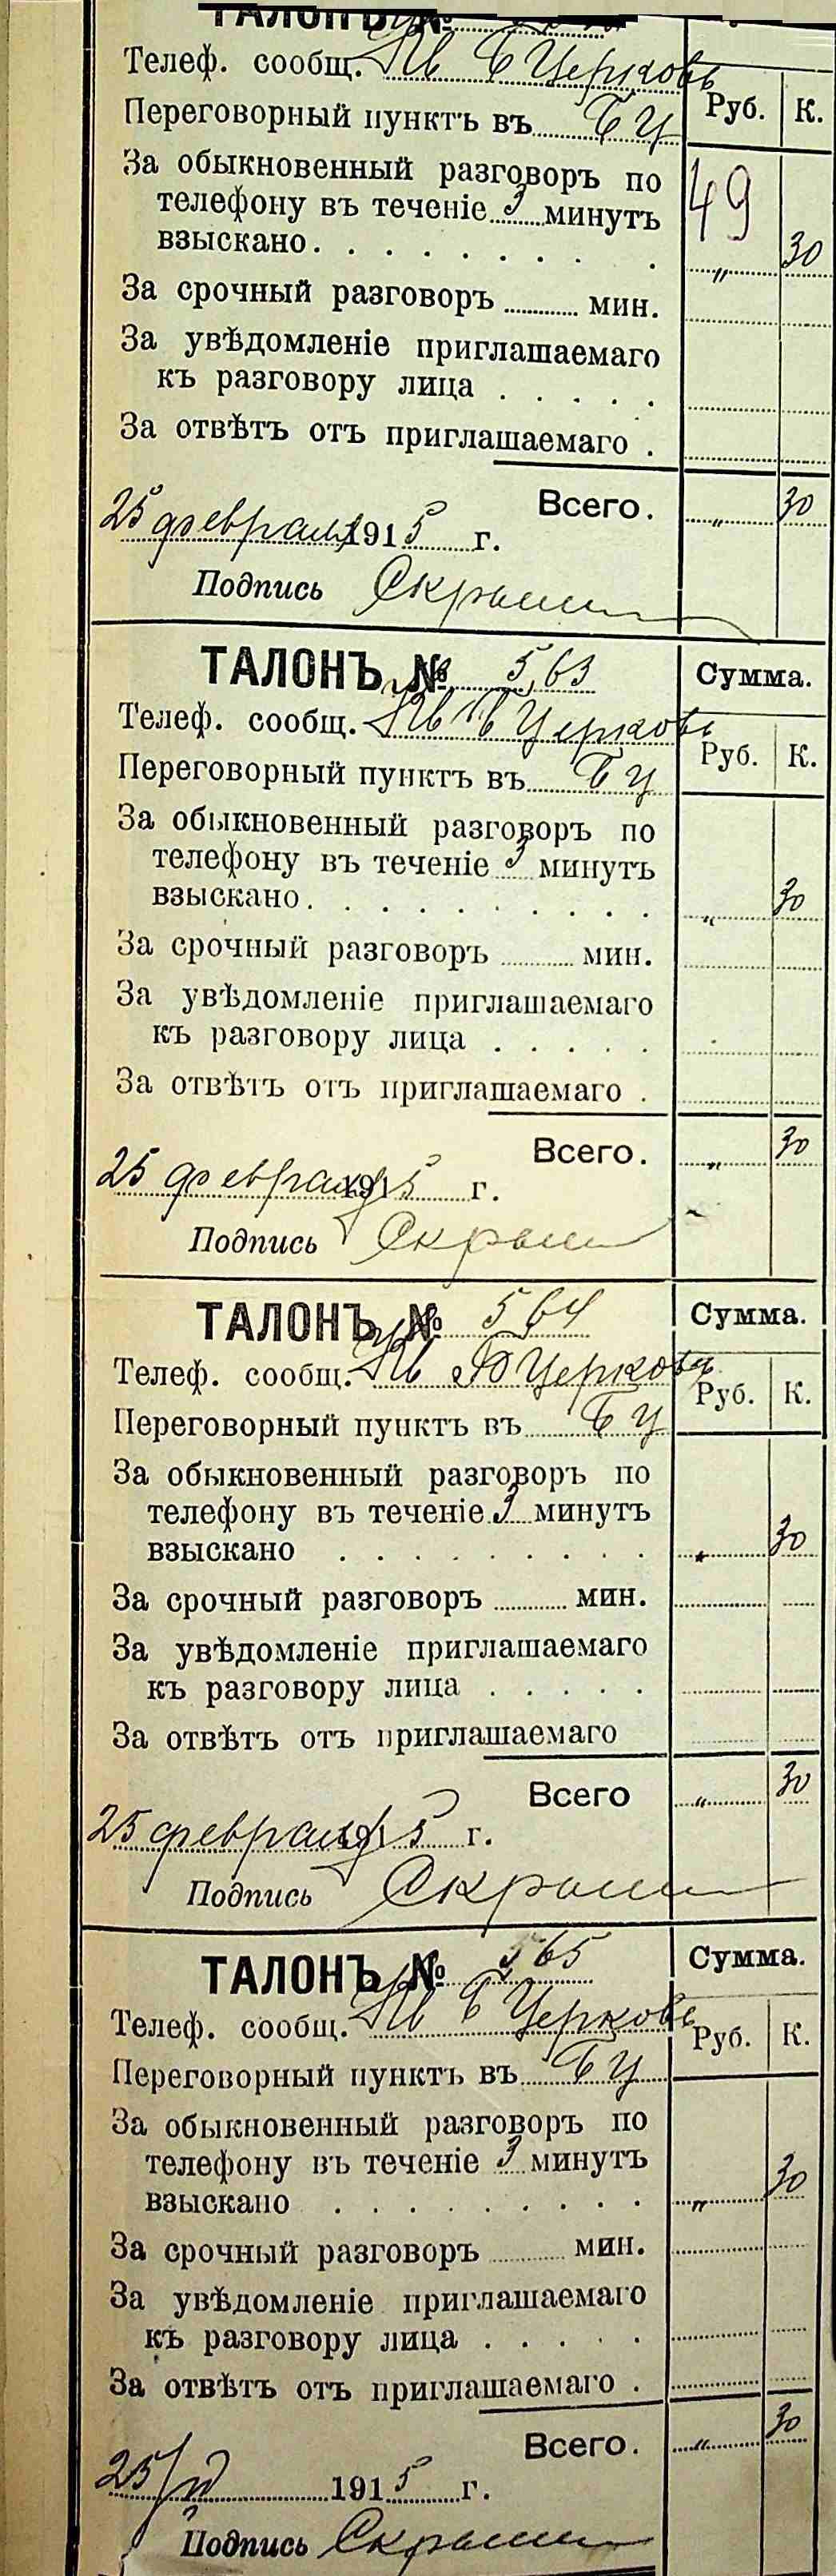 ТАЛОНЪ №
Телеф. сообщ. Кв Б Церковь
Руб. К.
Переговорный пунктъ въ БЦ
За обыкновенный разговоръ по
телефону въ теченіе 3 минутъ
49
взыскано. . . . . . . . . „ 30
За срочный разговоръ мин.
За увѣдомленіе приглашаемаго
къ разговору лица . . . . .
За отвѣтъ отъ приглашаемаго .
Всего. „ 30
25 февраля 1915 г.
Подпись
ТАЛОНЪ № 563
Сумма.
Телеф. сообщ. Кв Б Церковь
Руб. К.
Переговорный пунктъ въ БЦ
За обыкновенный разговоръ по
телефону въ теченіе 3 минутъ
взыскано. . . . . . . . . . „ 30
За срочный разговоръ мин.
За увѣдомленіе приглашаемаго
къ разговору лица . . . . .
За отвѣтъ отъ приглашаемаго .
Всего. „ 30
25 февраля 1915 г.
Подпись
ТАЛОНЪ № 564
Сумма.
Телеф. сообщ. Кв Б Церковь
Руб. К.
Переговорный пунктъ въ БЦ
За обыкновенный разговоръ по
телефону въ теченіе 3 минутъ
взыскано . . . . . . . . . „ 30
За срочный разговоръ мин.
За увѣдомленіе приглашаемаго
къ разговору лица . . . . .
За отвѣтъ отъ приглашаемаго
Всего „ 30
25 февраля 1915 г.
Подпись
ТАЛОНЪ № 565
Сумма.
Телеф. сообщ. Кв Б Церковь
Руб. К.
Переговорный пунктъ въ БЦ
За обыкновенный разговоръ по
телефону въ теченіе 3 минутъ
взыскано . . . . . . . . . „ 30
За срочный разговоръ мин.
За увѣдомленіе приглашаемаго
къ разговору лица . . . . .
За отвѣтъ отъ приглашаемаго .
Всего. „ 30
25/II 1915 г.
Подпись